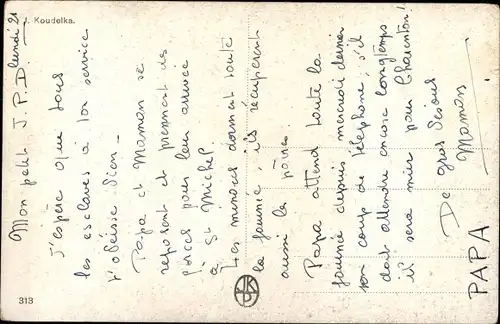 J. Koudelka.
lundi 21
Mon petit J. P. D.
J'espère que tous
les esclaves à ton service
t'obéisse bien -
Papa et Maman se
reposent et prennent des
forces pour leur arrivée
à St Michel.
Les minous dorment toute
la journée, ils récupèrent
aussi les pôvres.
Papa attend toute la
journée depuis mercredi dernier
son coup de téléphone, s'il
doit attendre encore longtemps
il sera mûr pour Charenton!
De gros bisous
Maman
PAPA
313